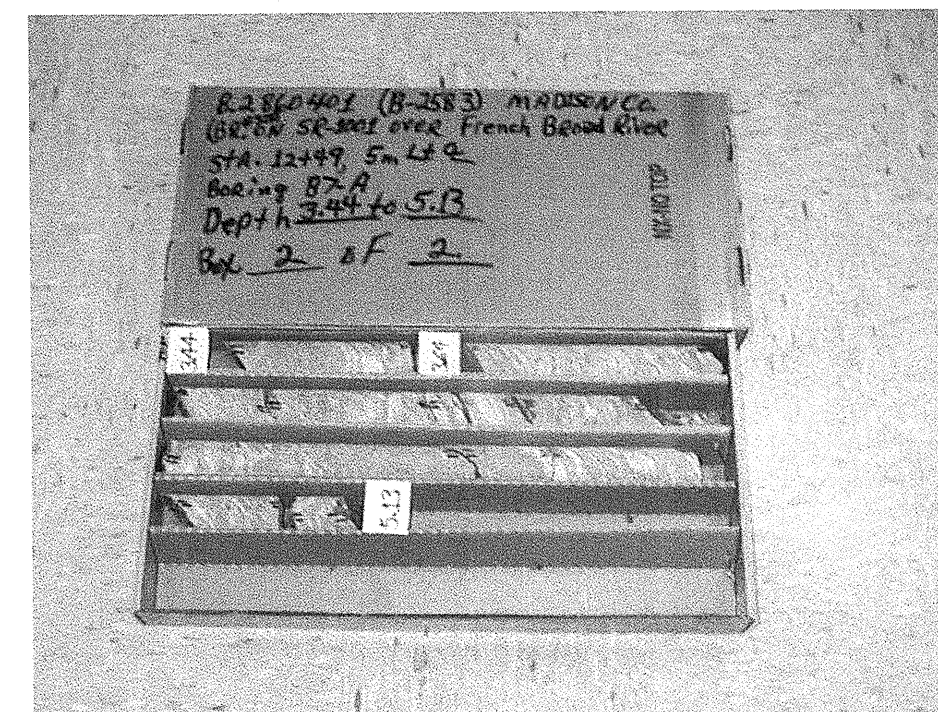 8.2860401 (B-2583) MADISON Co.
(BR. ON SR-1001 over French Broad River
StA. 12+49, 5m Lt
Boring B7-A
Depth 3.44 to 5.13
Box 2 oF 2
NX-HQ TOP
3.44
3.64
5.13